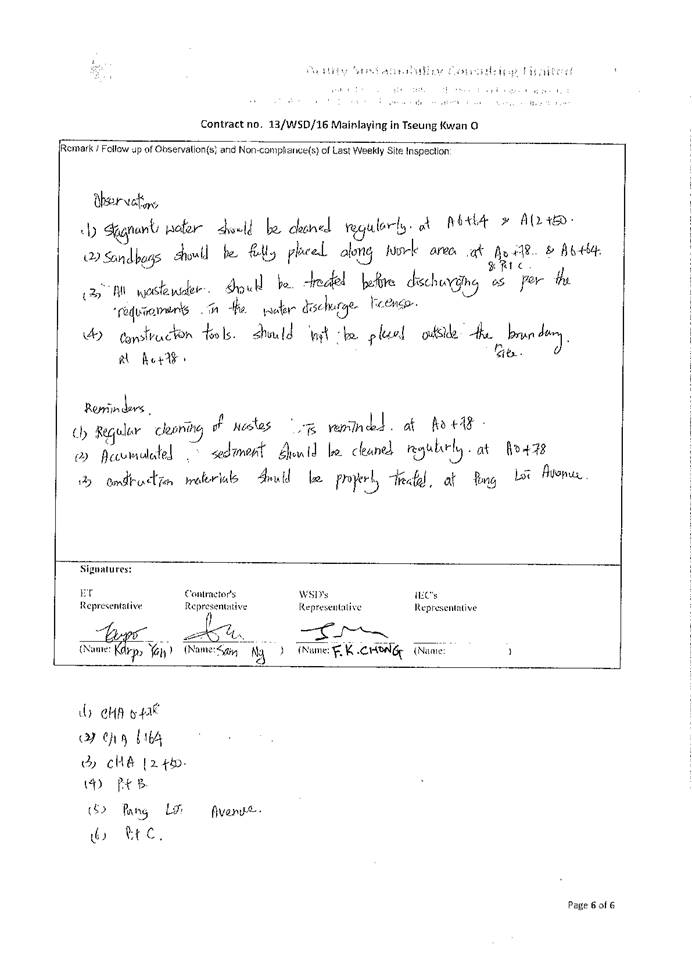 Acuity Sustainability Consulting Limited
Contract no. 13/WSD/16 Mainlaying in Tseung Kwan O
Remark / Follow up of Observation(s) and Non-compliance(s) of Last Weekly Site Inspection:
Observations
(1) Stagnant water should be cleaned regularly. at A6+64 & A12+50.
(2) Sandbags should be fully placed along work area at A0+78. & A6+64.
& Pit C.
(3) All wastewater should be treated before discharging as per the
requirements in the water discharge license.
(4) Construction tools. should not be placed outside the boundary.
site.
at A0+78.
Reminders.
(1) Regular cleaning of wastes is reminded. at A0+78.
(2) Accumulated sediment should be cleaned regularly. at A0+78
(3) Construction materials should be properly treated. at Pung Loi Avenue.
Signatures:
ET Contractor's WSD's IEC's
Representative Representative Representative Representative
(Name: Karpo Yan) (Name: Sam Ng ) (Name: F.K. CHONG (Name: )
(1) CHA 0+78
(2) CHA 6+64
(3) CHA 12+50.
(4) Pit B
(5) Pung Loi Avenue.
(6) Pit C.
Page 6 of 6